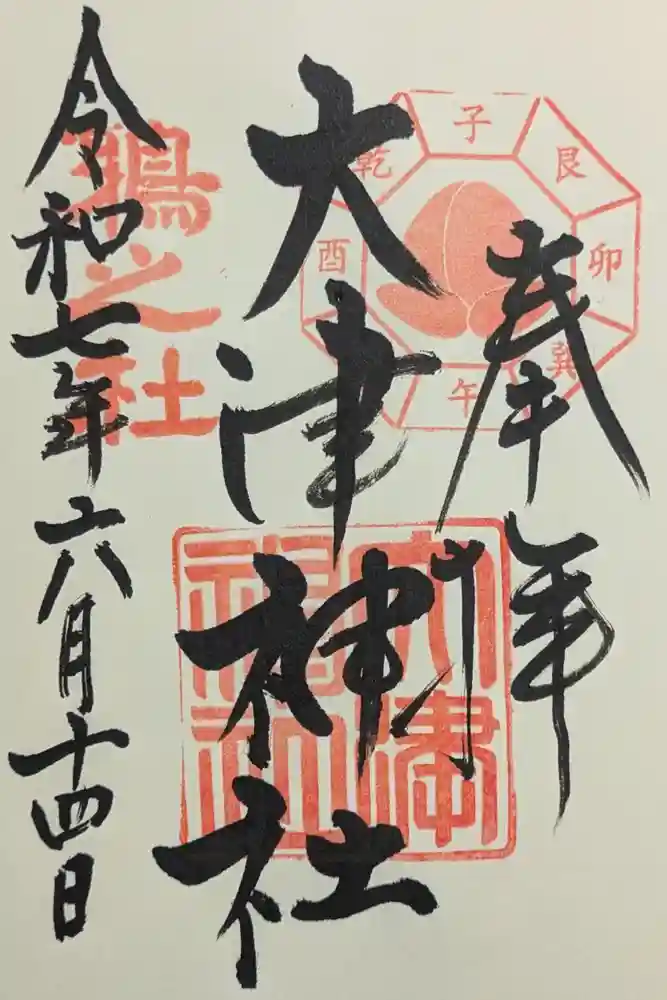 奉拝
大津神社
令和七年六月十四日
子
艮
卯
巽
午
酉
乾
鵲之社
大津神社